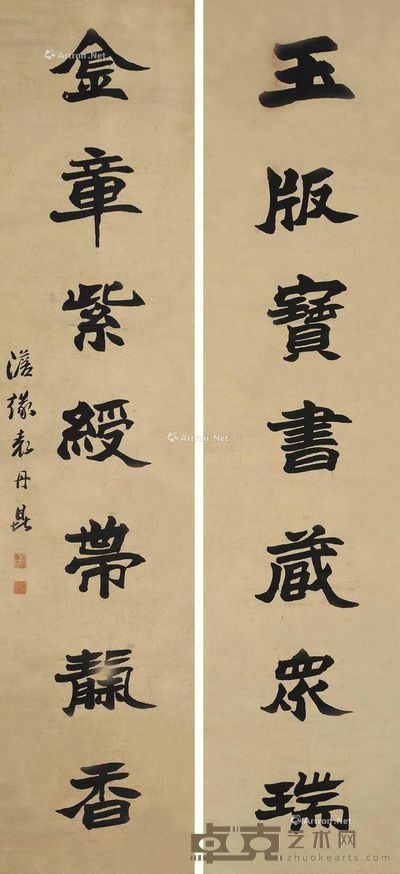 玉版寶書藏眾瑞
金章紫綬帶靔香
澹緣袁丹
Artron.Net
Artron.Net
Artron.Net
Artron.Net
卓克艺术网
zhuokearts.com